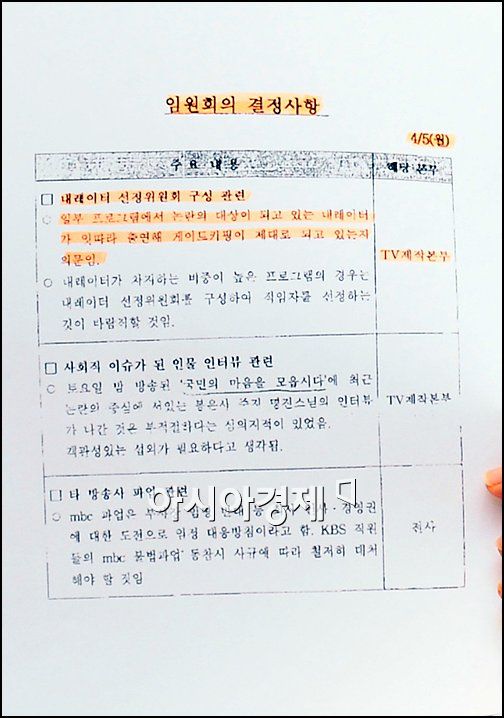 임원회의 결정사항
4/5(월)
주요내용 해당 본부
□ 내레이터 선정위원회 구성 관련
○ 일부 프로그램에서 논란의 대상이 되고 있는 내레이터
가 잇따라 출연해 게이트키핑이 제대로 되고 있는지
의문임.
TV제작본부
○ 내레이터가 차지하는 비중이 높은 프로그램의 경우는
내레이터 선정위원회를 구성하여 적임자를 선정하는
것이 바람직할 것임.
□ 사회적 이슈가 된 인물 인터뷰 관련
○ 토요일 밤 방송된 '국민의 마음을 모읍시다'에 최근
논란의 중심에 서있는 봉은사 주지 명진스님의 인터뷰
가 나간 것은 부적절하다는 심의지적이 있었음.
TV제작본부
객관성있는 섭외가 필요하다고 생각됨.
□ 타 방송사 파업 관련
아시아경제
○ mbc 파업은 경영권
에 대한 도전으로 대응방침이라고 함. KBS 직원
전사
들의 mbc 불법파업 동참시 사규에 따라 철저히 대처
해야 할 것임